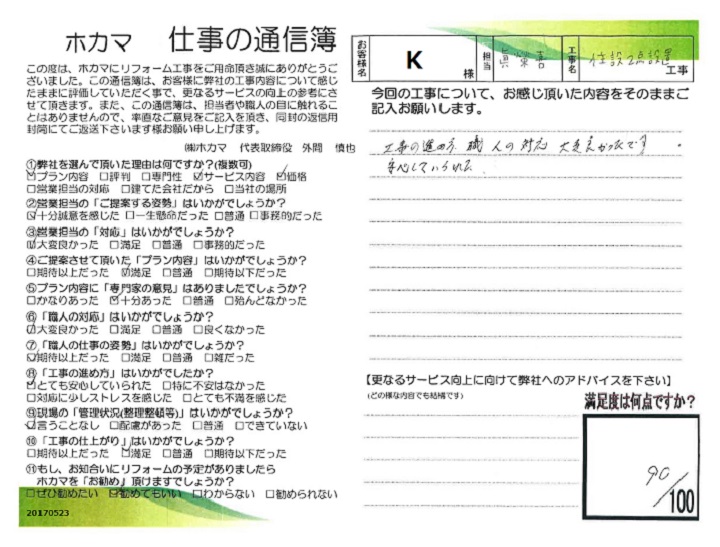 ホカマ 仕事の通信簿
お客様名 K 様 担当 眞榮喜 工事名 住設2点設置 工事
この度は、ホカマにリフォーム工事をご用命頂き誠にありがとうご
ざいました。この通信簿は、お客様に弊社の工事内容について感じ
たままに評価していただく事で、更なるサービスの向上の参考にさ
せて頂きます。また、この通信簿は、担当者や職人の目に触れるこ
とはありませんので、率直なご意見をご記入を頂き、同封の返信用
封筒にてご返送下さいます様お願い申し上げます。
㈱ホカマ 代表取締役 外間 慎也
①弊社を選んで頂いた理由は何ですか?(複数可)
☑プラン内容 □評判 □専門性 ☑サービス内容 ☑価格
□営業担当の対応 □建てた会社だから □当社の場所
②営業担当の「ご提案する姿勢」はいかがでしょうか?
☑十分誠意を感じた □一生懸命だった □普通 □事務的だった
③営業担当の「対応」はいかがでしょうか?
☑大変良かった □満足 □普通 □事務的だった
④ご提案させて頂いた「プラン内容」はいかがでしょうか?
□期待以上だった ☑満足 □普通 □期待以下だった
⑤プラン内容に「専門家の意見」はありましたでしょうか?
□かなりあった ☑十分あった □普通 □殆んどなかった
⑥「職人の対応」はいかがでしょうか?
☑大変良かった □満足 □普通 □良くなかった
⑦「職人の仕事の姿勢」はいかがでしょうか?
☑期待以上だった □満足 □普通 □雑だった
⑧「工事の進め方」はいかがでしたか?
☑とても安心していられた □特に不安はなかった
□対応に少しストレスを感じた □とても不満を感じた
⑨現場の「管理状況(整理整頓等)」はいかがでしょうか?
☑言うことなし □配慮があった □普通 □できていない
⑩「工事の仕上がり」はいかがでしょうか?
□期待以上だった ☑満足 □普通 □期待以下だった
⑪もし、お知合いにリフォームの予定がありましたら
ホカマを「お勧め」頂けますでしょうか?
□ぜひ勧めたい ☑勧めてもいい □わからない □勧められない
20170523
今回の工事について、お感じ頂いた内容をそのままご
記入お願いします。
工事の進め方 職人の対応 大変良かったです。
安心していられた
【更なるサービス向上に向けて弊社へのアドバイスを下さい】
(どの様な内容でも結構です)
満足度は何点ですか?
90/100